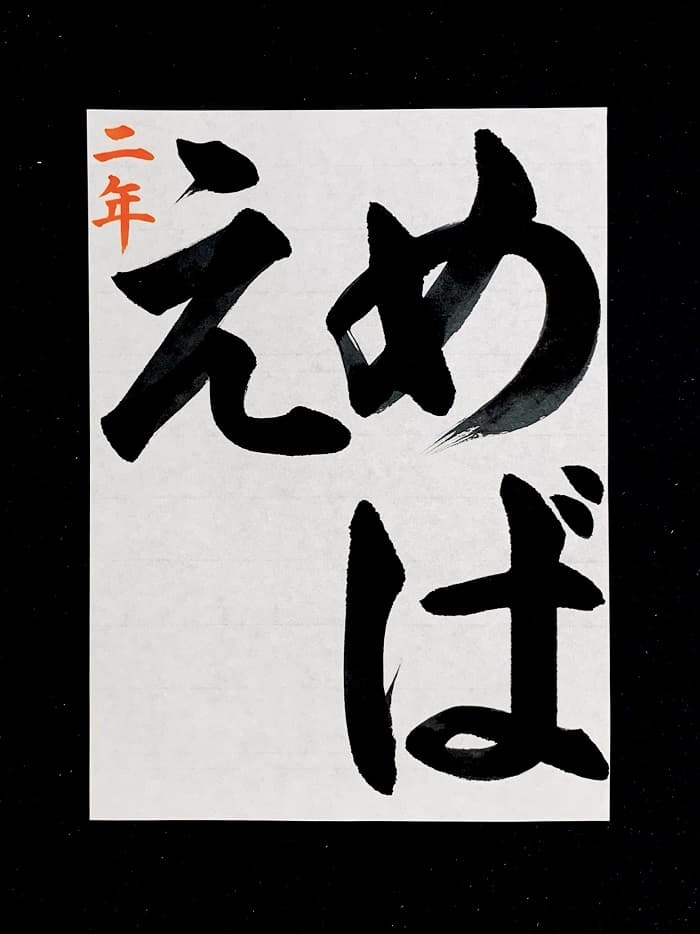 めば
え
二年